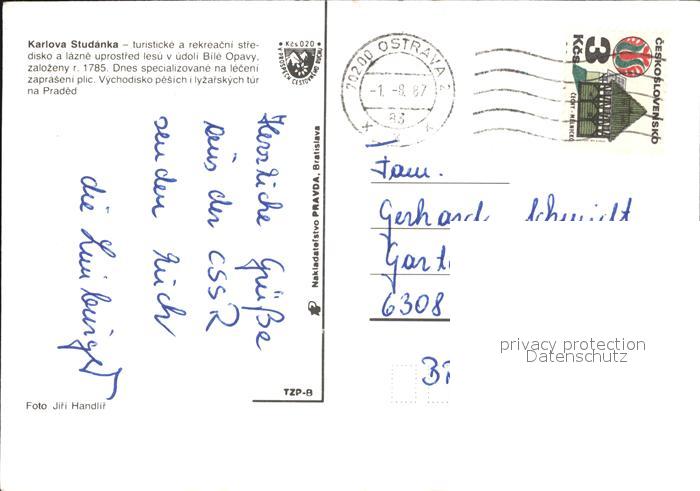 Karlova Studánka – turistické a rekreační stře-
disko a lázně uprostřed lesů v údolí Bílé Opavy,
založeny r. 1785. Dnes specializované na léčení
zaprášení plic. Východisko pěších i lyžařských túr
na Praděd
Kčs 0,20
Herzliche Grüße
aus der CSSR
senden Euch
die
Nakladatelství PRAVDA, Bratislava
TZP-B
Foto Jiří Handlíř
70200 OSTRAVA 2
-1.-8.87
ČESKOSLOVENSKO
3
Kčs
ČECHY - MĚLNICKO
Fam.
Gerhard Schmidt
Gart
6308
privacy protection
Datenschutz